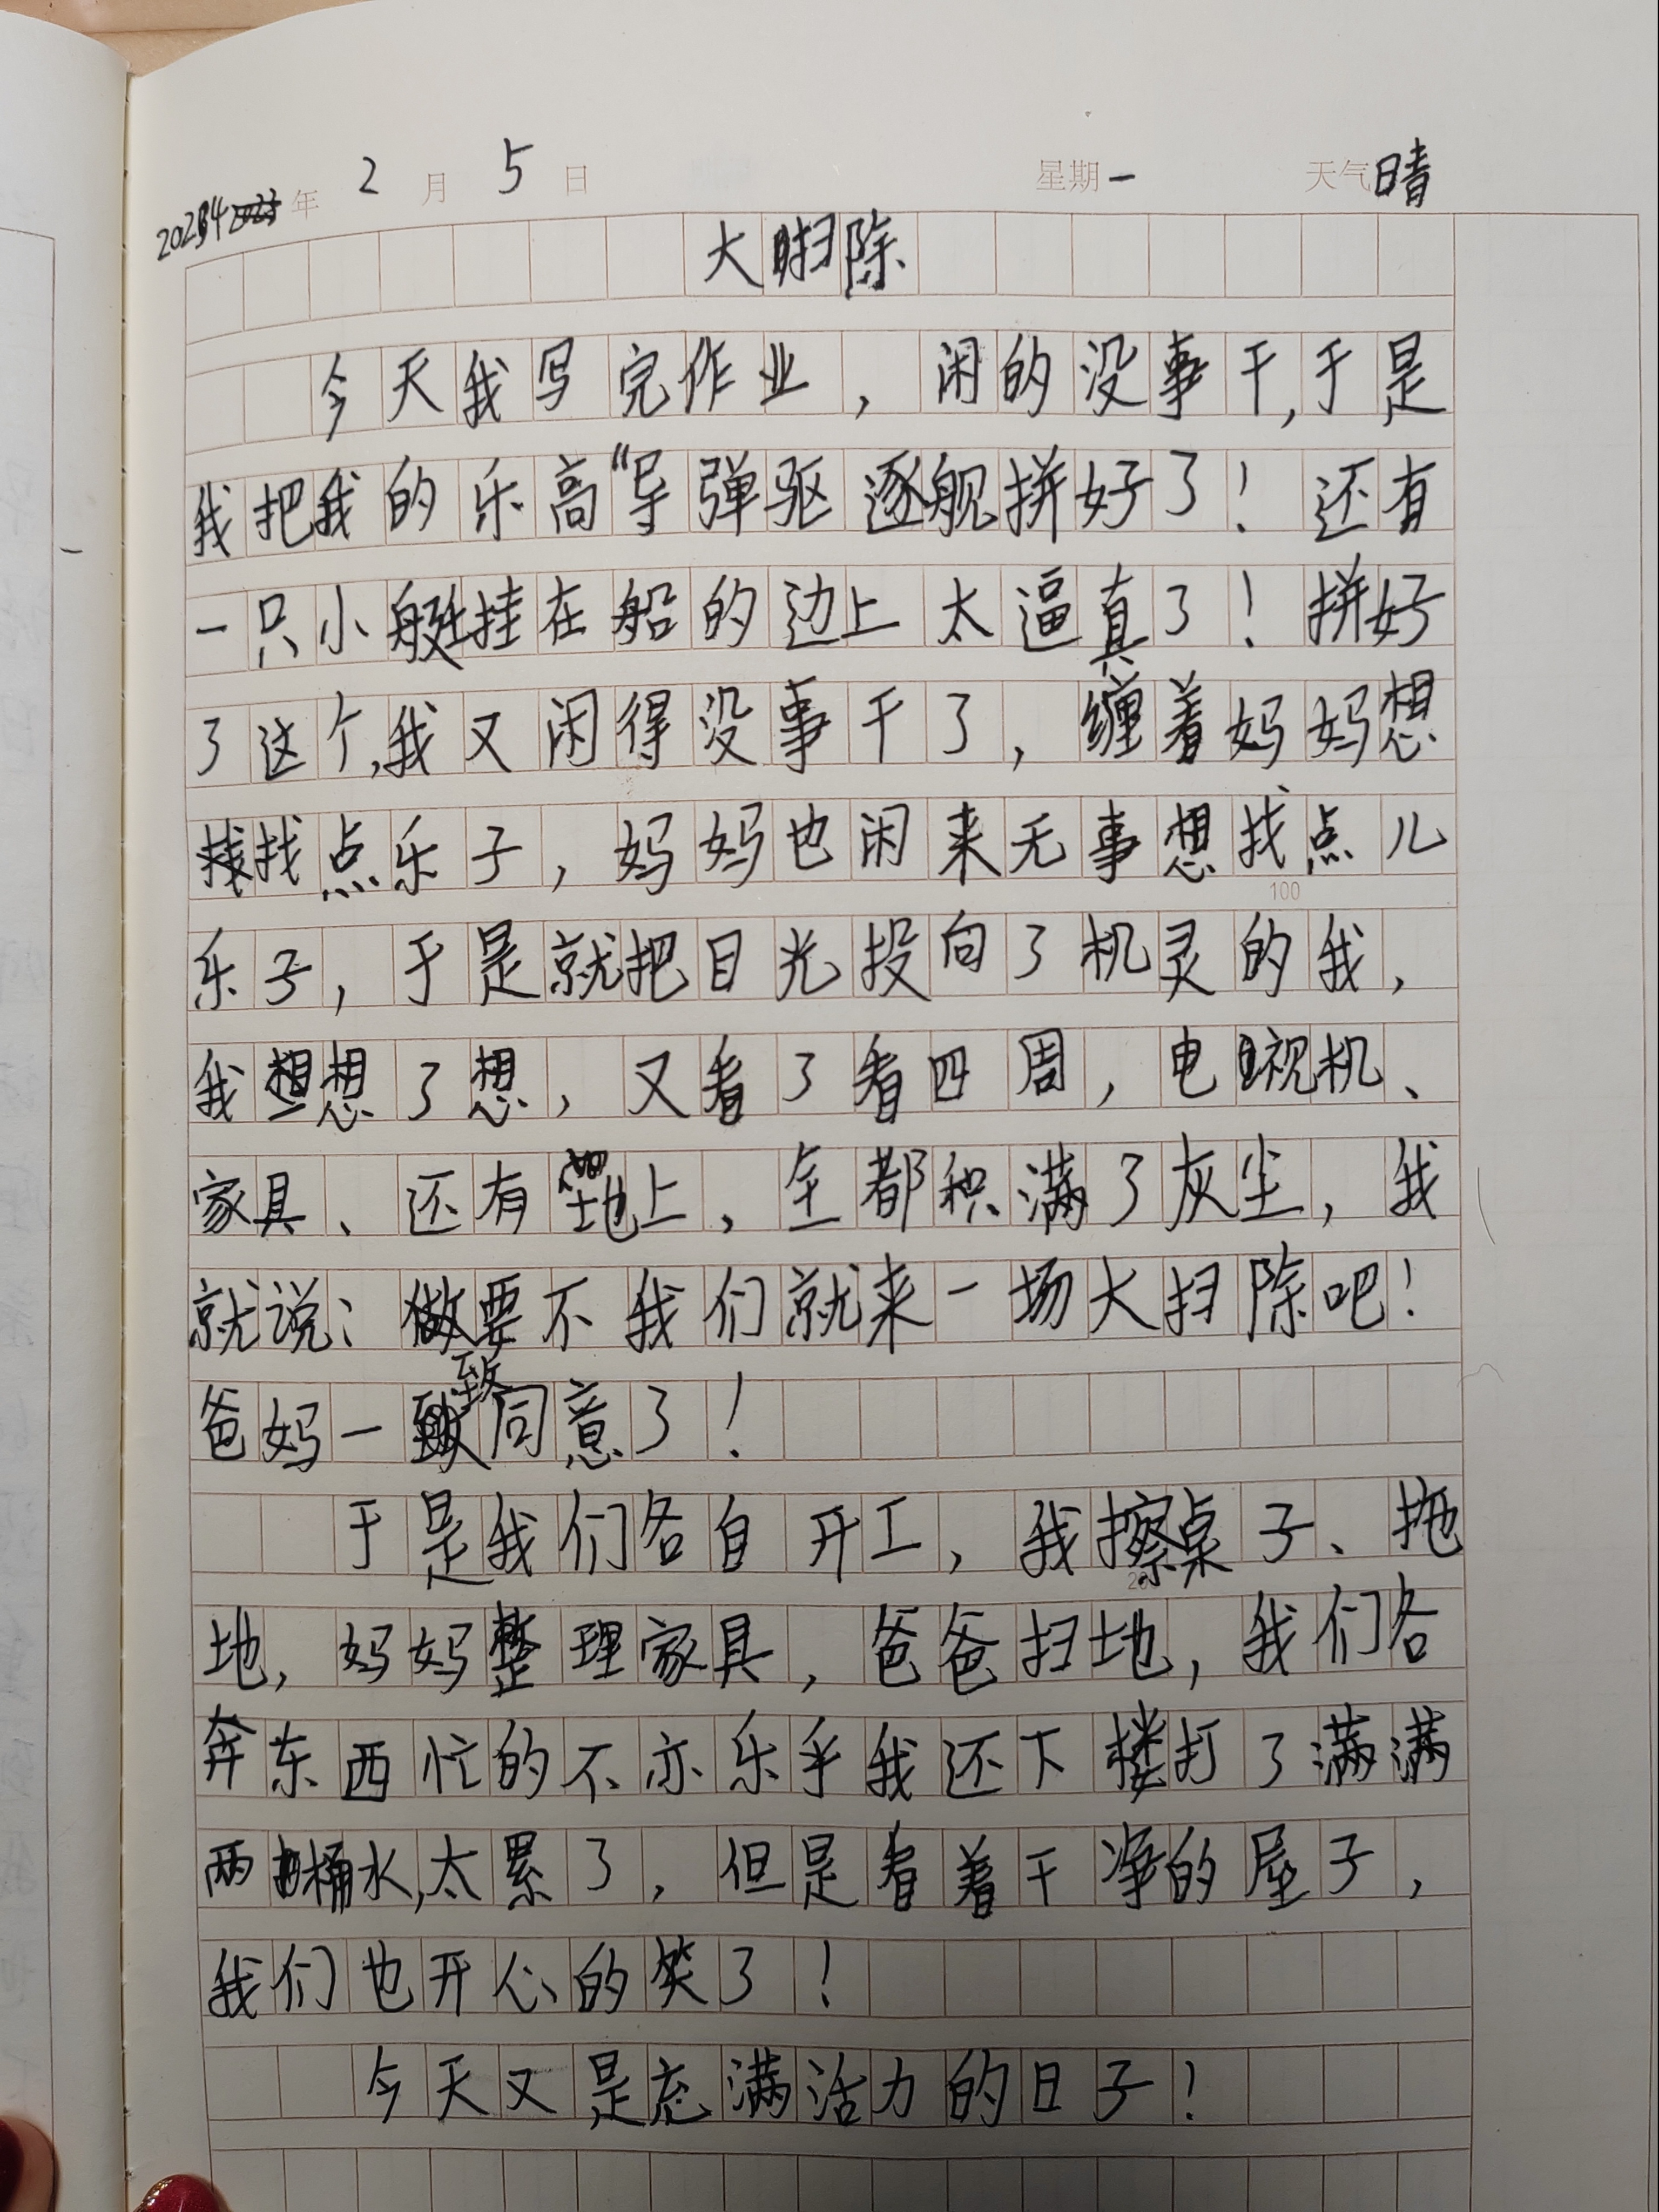 2024年2月5日 星期一 天气晴
大扫除
今天我写完作业，闲的没事干，于是
我把我的乐高“导弹驱逐舰拼好了！还有
一只小艇挂在船的边上太逼真了！拼好
了这个，我又闲得没事干了，缠着妈妈想
找点乐子，妈妈也闲来无事想找点儿
100
乐子，于是就把目光投向了机灵的我，
我想了想，又看了看四周，电视机、
家具、还有地上，全都积满了灰尘，我
就说：要不我们就来一场大扫除吧！
爸妈一致同意了！
于是我们各自开工，我擦桌子、拖
地，妈妈整理家具，爸爸扫地，我们各
奔东西忙的不亦乐乎我还下楼打了满满
两桶水，太累了，但是看着干净的屋子，
我们也开心的笑了！
今天又是充满活力的日子！